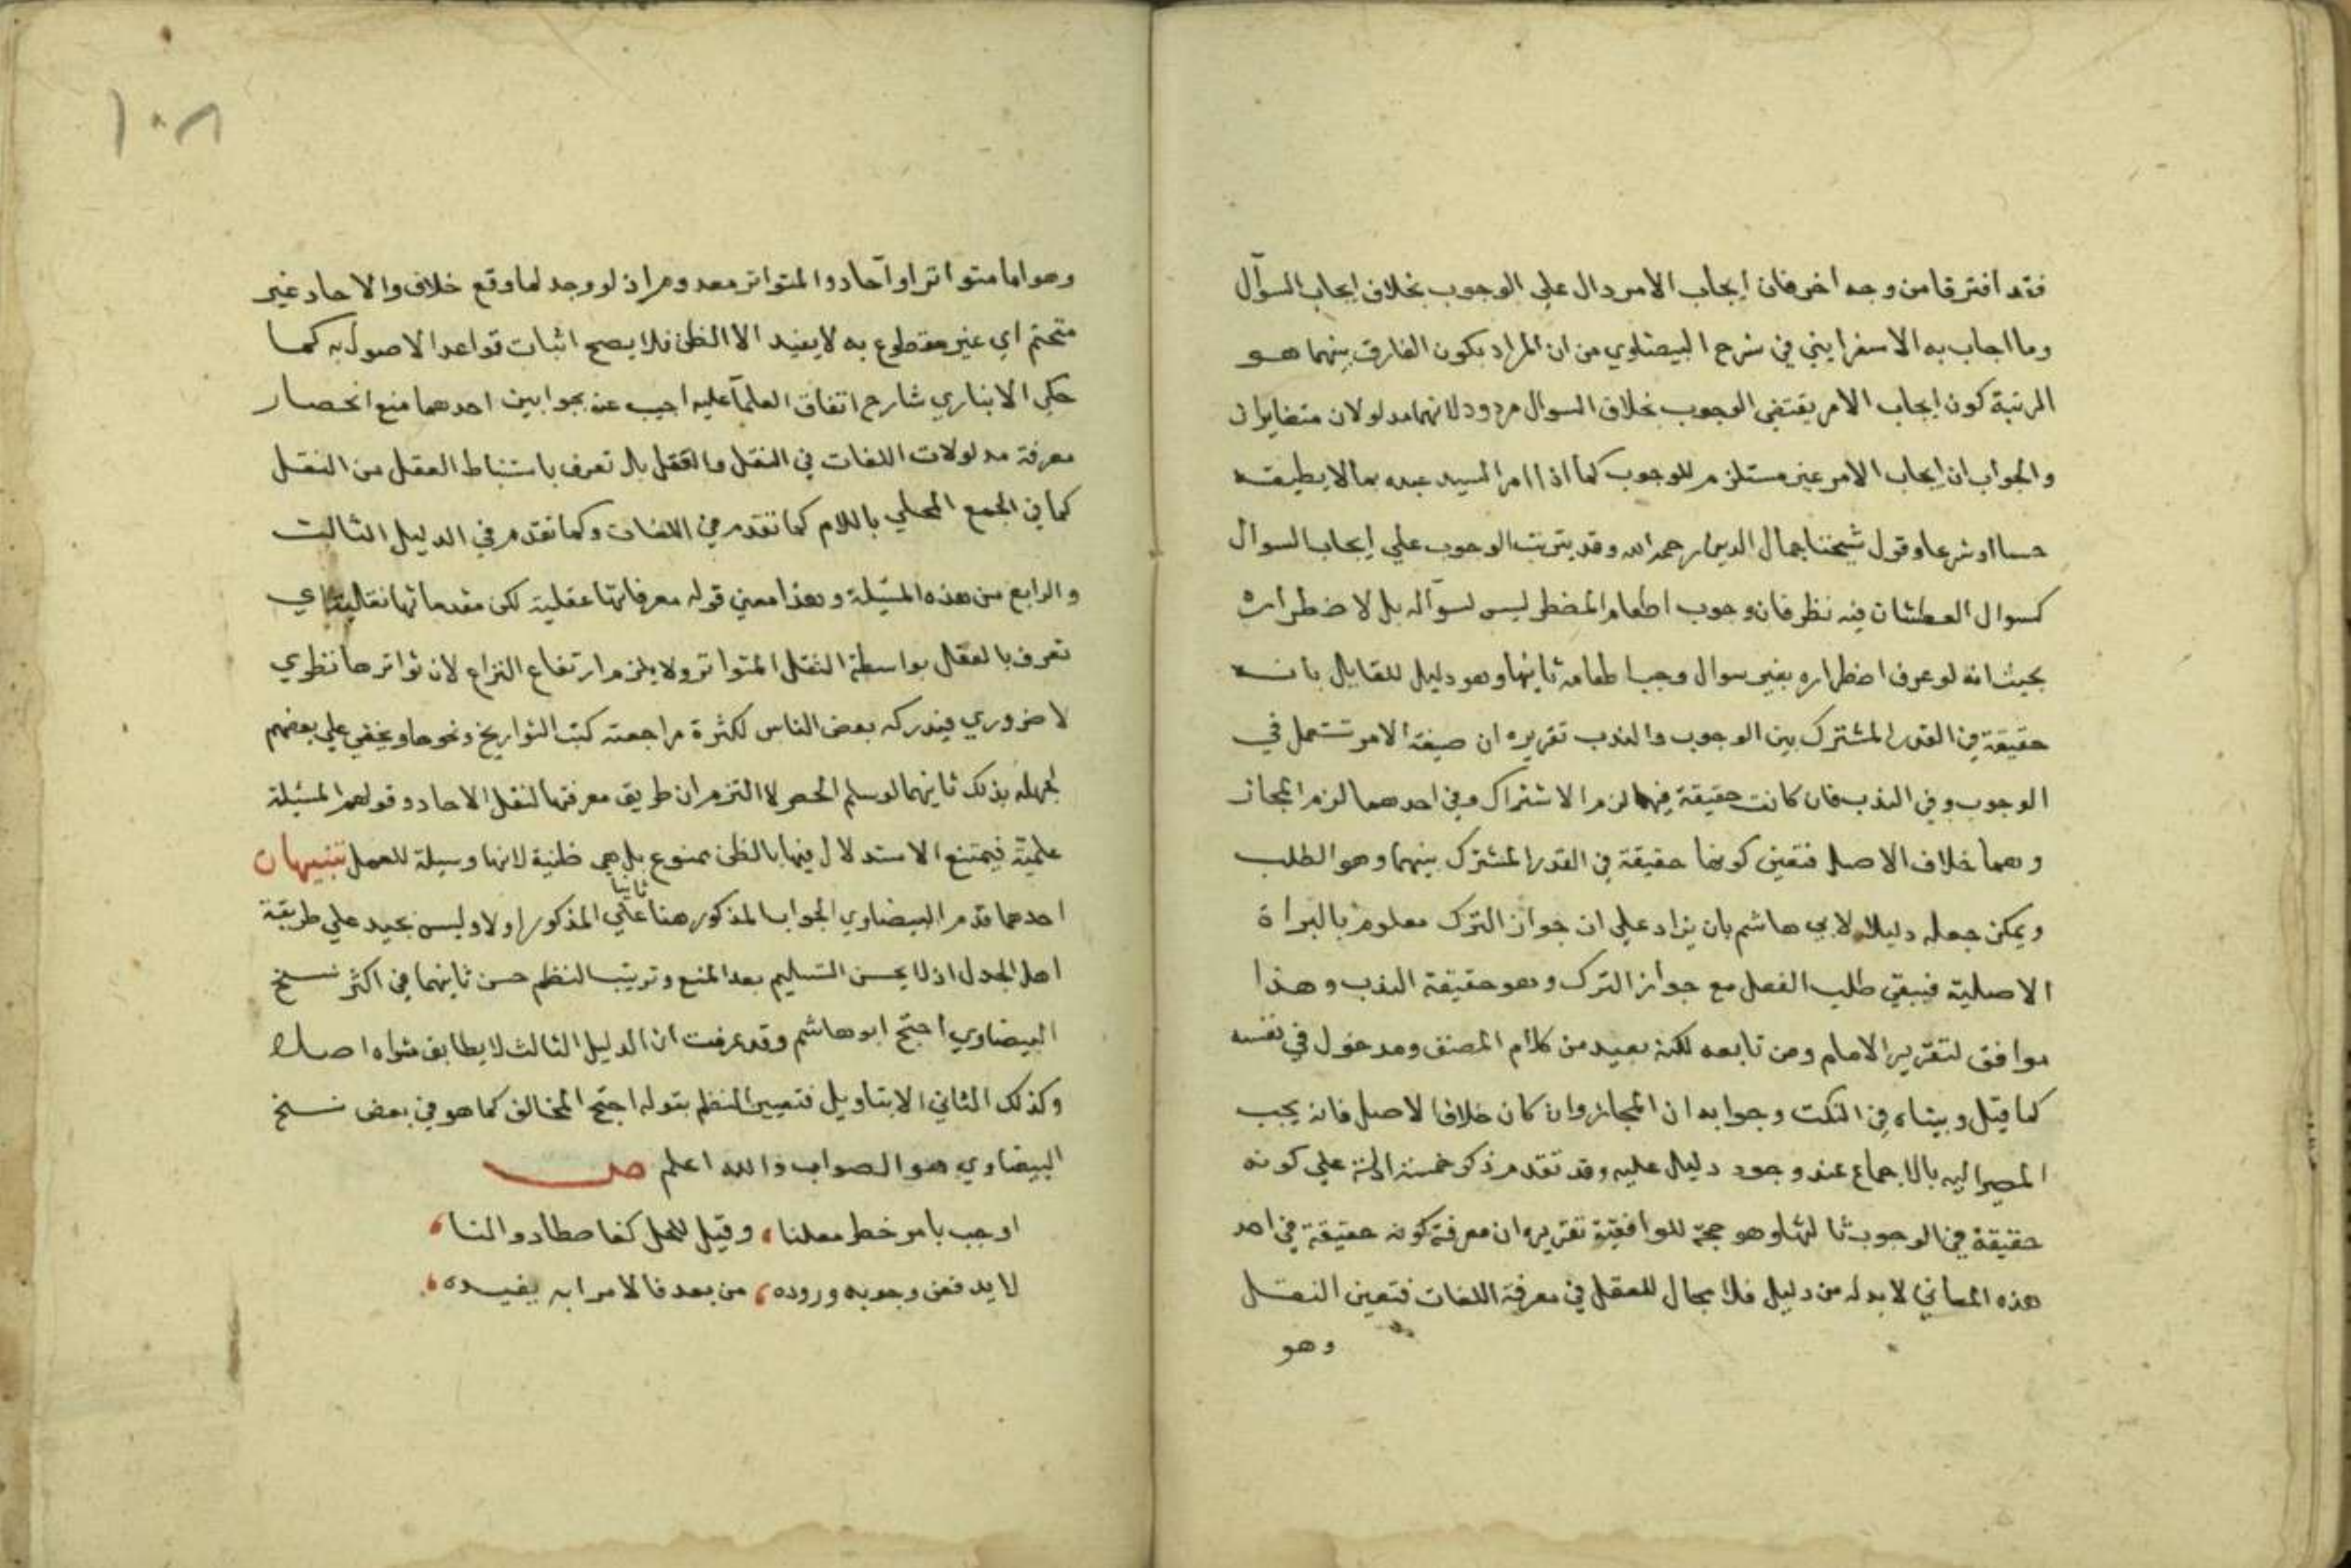 فقد افترقا من وجه اخر فان ايجاب الامر دال علي الوجوب بخلاف ايجاب السوآل
وما اجاب به الاسفرايني في شرح البيضاوي من ان المراد بكون الفارق بينهما هو
الرتبة كون ايجاب الامر يقتضي الوجوب بخلاف السوال مردود لانهما مدلولان متغايران
والجواب ان ايجاب الامر غير مستلزم للوجوب كما اذا امر السيد عبده بما لا يطيقه
حسا او شرعا وقول شيخنا جمال الدين رحمه الله وقد يترتب الوجوب علي ايجاب السوال
كسوال العطشان فيه نظر فان وجوب اطعام المضطر ليس لسوآله بل لاضطراره
بحيث انه لو عرف اضطراره بغير سوال وجب اطعامه ثانيها وهو دليل للقايل بانه
حقيقة في القدر المشترك بين الوجوب والندب تقريره ان صيغة الامر تستعمل في
الوجوب وفي الندب فان كانت حقيقة فيهما لزم الاشتراك وفي احدهما لزم المجاز
وهما خلاف الاصل فتعين كونها حقيقة في القدر المشترك بينهما وهو الطلب
ويمكن جعله دليلا لابي هاشم بان يزاد علي ان جواز الترك معلوم بالبراة
الاصلية فيبقي طلب الفعل مع جواز الترك وهو حقيقة الندب وهذا
موافق لتقرير الامام ومن تابعه لكنه بعيد من كلام المصنف ومدخول في نفسه
كما قيل وبيناه في النكت وجوابه ان المجاز وان كان خلاف الاصل فانه يجب
المصير اليه بالاجماع عند وجود دليل عليه وقد تقدم ذكر خمسة ادلة علي كونه
حقيقة في الوجوب ثالثها وهو حجة للواقفية تقريره ان معرفة كونه حقيقة في احد
هذه المعاني لا بد له من دليل فلا مجال للعقل في معرفة اللغات فتعين النقل
وهو
١٠٨
وهو اما متواتر او آحاد والمتواتر معدوم اذ لو وجد لما وقع خلاف والاحاد غير
متحتم اي غير مقطوع به لا يفيد الا الظن فلا يصح اثبات قواعد الاصول به كما
حكي الابناري شارح اتفاق العلمآ عليه اجيب عنه بجوابين احدهما منع انحصار
معرفة مدلولات اللغات في النقل والعقل بل تعرف باستنباط العقل من النقل
كما في الجمع المحلي باللام كما تقدم في اللغات وكما تقدم في الدليل الثالث
والرابع من هذه المسئلة وهذا معني قوله معرفاتها عقلية لكن مقدماتها نقلية اي
تعرف بالعقل بواسطة النقل المتواتر ولا يلزم ارتفاع النزاع لان تواترها نظري
لا ضروري فيدركه بعض الناس لكثرة مراجعته كتب التواريخ ونحوها ويخفي علي بعضهم
لجهله بذلك ثانيهما لو سلم الحصر لا التزم ان طريق معرفتها لنقل الاحاد وقولهم المسئلة
علمية فيمتنع الاستدلال فيها بالظن ممنوع بل هي ظنية لانها وسيلة للعمل تنبيهان
احدهما قدم البيضاوي الجواب المذكور هنا ثانيا علي المذكور اولا وليس بجيد علي طريقة
اهل الجدل اذ لا يحسن التسليم بعد المنع وترتيب النظم حسن ثانيهما في اكثر نسخ
البيضاوي احتج ابو هاشم وقد عرفت ان الدليل الثالث لا يطابق دعواه اصلا
وكذلك الثاني الا بتاويل فتعبير النظم بقوله احتج المخالف كما هو في بعض نسخ
البيضاوي هو الصواب والله اعلم ص
اوجب بامر خطر معلنا، وقيل للحل كفاصطادوا لنا،
لا يدفعن وجوبه وروده، من بعد فالامر به يفيده،